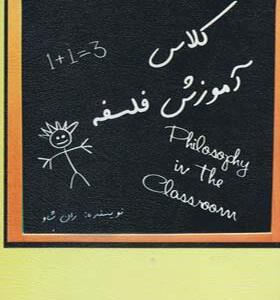 کلاس
1+1=3
آموزش فلسفه
Philosophy
in The
Classroom
نویسنده: ران شاو